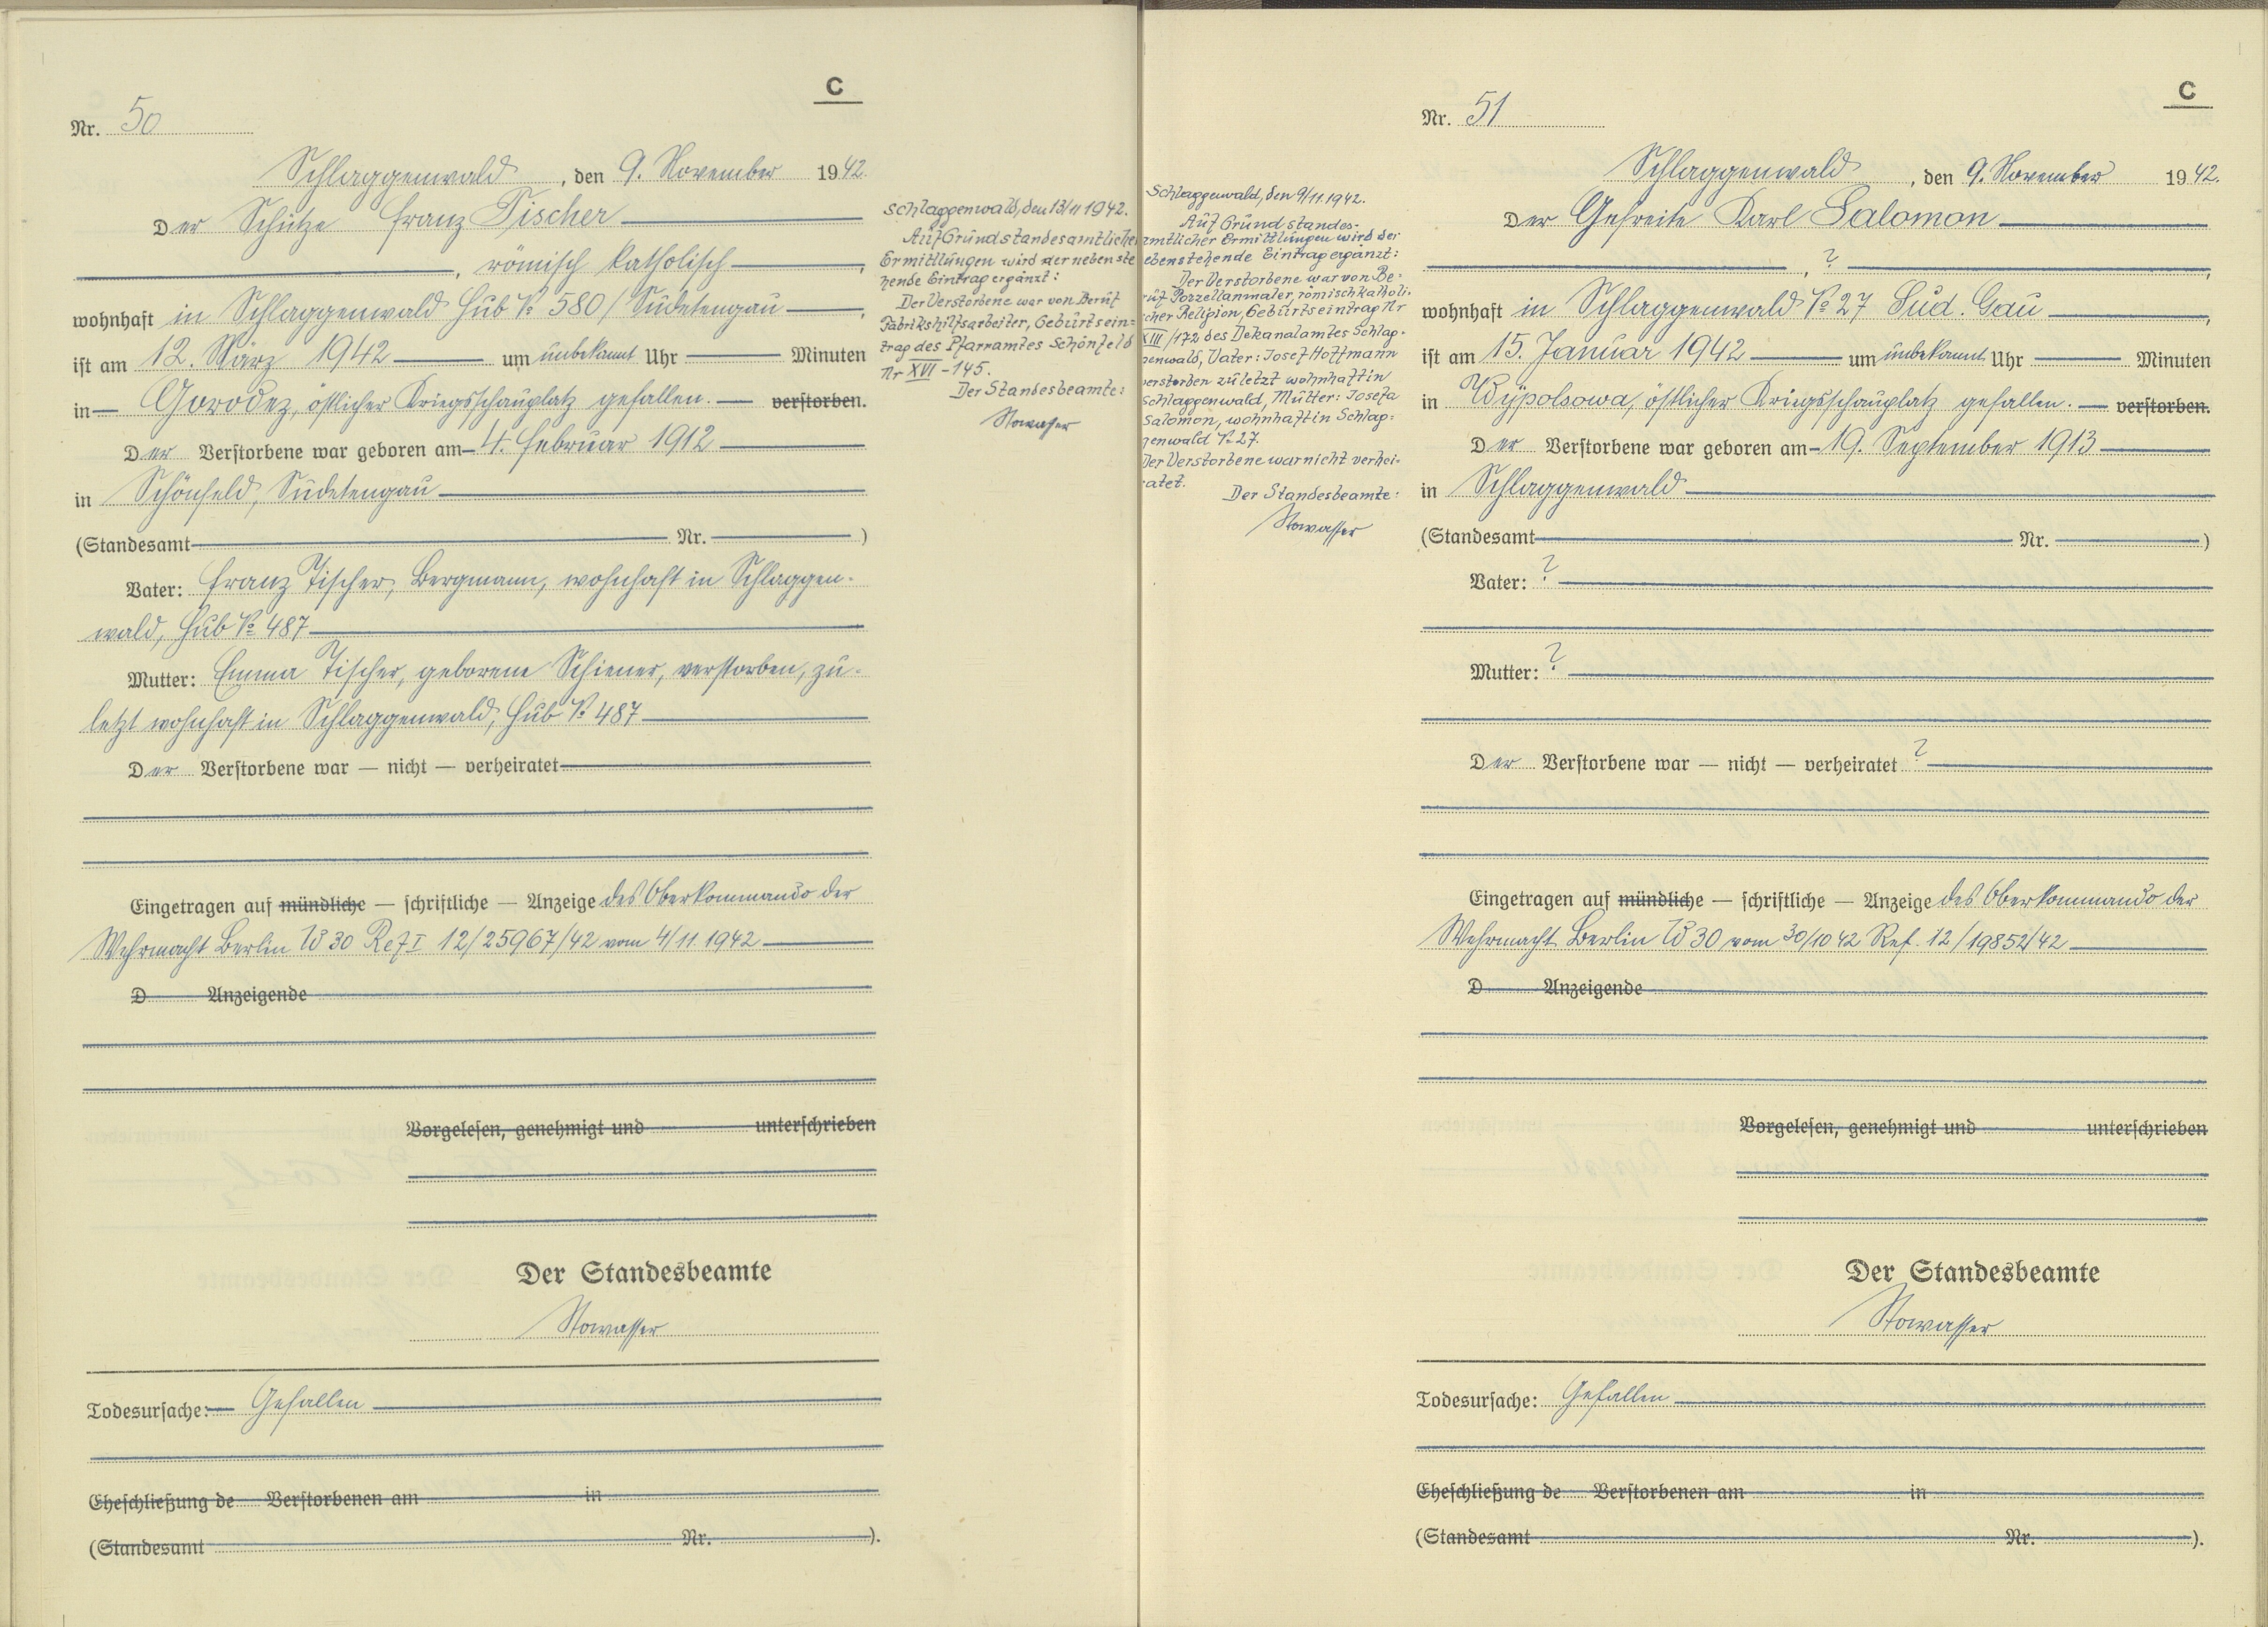 C
Nr. 50
Schlaggenwald, den 9. November 1942.
Der Schütze Franz Tischer
, römisch katholisch,
wohnhaft in Schlaggenwald Hub № 580 / Sudetengau,
ist am 12. März 1942 um unbekannt Uhr Minuten
in Gorodez, östlicher Kriegsschauplatz gefallen. verstorben.
Der Verstorbene war geboren am 4. Februar 1912
in Schönfeld, Sudetengau
(Standesamt Nr. )
Vater: Franz Tischer, Bergmann, wohnhaft in Schlaggen-
wald, Hub № 487
Mutter: Emma Tischer, geborene Schiener, verstorben, zu-
letzt wohnhaft in Schlaggenwald, Hub № 487
Der Verstorbene war — nicht — verheiratet
Eingetragen auf mündliche — schriftliche — Anzeige des Oberkommando der
Wehrmacht Berlin W 30 Ref I 12/25967/42 vom 4/11 1942
D Anzeigende
Vorgelesen, genehmigt und unterschrieben
Der Standesbeamte
Stowasser
Todesursache: Gefallen
Eheschließung de Verstorbenen am in
(Standesamt Nr. ).
Schlaggenwald, den 13/11 1942.
Auf Grund standesamtlicher
Ermittlungen wird der nebenste
hende Eintrag ergänzt:
Der Verstorbene war von Beruf
Fabrikshilfsarbeiter, Geburtsein=
trag des Pfarramtes Schönfeld
Nr XVI - 145.
Der Standesbeamte:
Stowasser
Schlaggenwald, den 9/11. 1942.
Auf Grund standes-
amtlicher Ermittlungen wird der
ebenstehende Eintrag ergänzt:
Der Verstorbene war von Be=
ruf Porzellanmaler, römisch katholi-
scher Religion, Geburtseintrag Nr
XIII/172 des Dekanalamtes Schlag-
genwald, Vater: Josef Hoffmann
verstorben zuletzt wohnhaft in
Schlaggenwald, Mutter: Josefa
Salomon, wohnhaft in Schlag=
genwald № 27.
Der Verstorbene war nicht verhei-
ratet.
Der Standesbeamte:
Stowasser
C
Nr. 51
Schlaggenwald, den 9. November 1942.
Der Gefreite Karl Salomon
, ?,
wohnhaft in Schlaggenwald № 27 Sud. Gau,
ist am 15. Januar 1942 um unbekannt Uhr Minuten
in Wypolsowa, östlicher Kriegsschauplatz gefallen. verstorben.
Der Verstorbene war geboren am 19. September 1913
in Schlaggenwald
(Standesamt Nr. )
Vater: ?
Mutter: ?
Der Verstorbene war — nicht — verheiratet ?
Eingetragen auf mündliche — schriftliche — Anzeige des Oberkommando der
Wehrmacht Berlin W 30 vom 30/10 42 Ref. 12/19852/42
D Anzeigende
Vorgelesen, genehmigt und unterschrieben
Der Standesbeamte
Stowasser
Todesursache: Gefallen
Eheschließung de Verstorbenen am in
(Standesamt Nr. ).